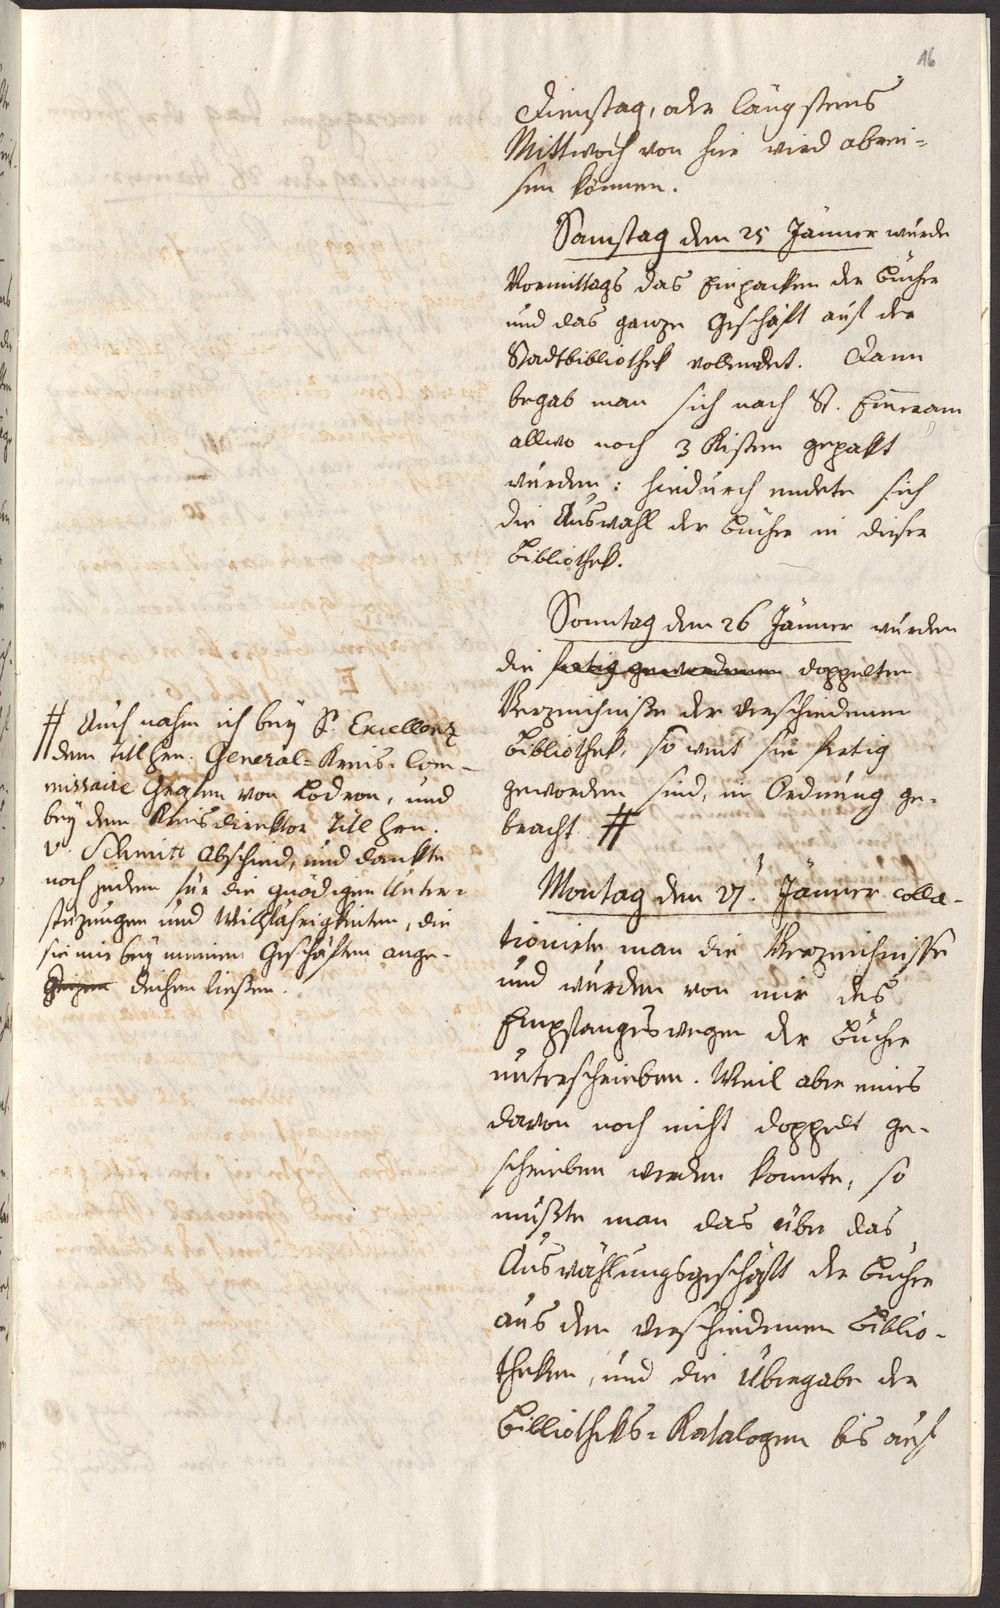 16
Dienstag, oder längstens
Mittwoch von hier wird abrei=
sen können.
Samstag den 25 Jänner wurde
Vormittags das Einpacken der Bücher
und das ganze Geschäft auf der
Stadtbibliothek vollendet. Dann
begab man sich nach St. Emeram
allwo noch 3 Kisten gepakt
wurden: hiedurch endete sich
die Auswahl der Bücher in dieser
Bibliothek.
Sonntag den 26 Jänner wurden
die fertig gewordenen doppelten
Verzeichniße der verschiedenen
Bibliothek, so weit sie fertig
geworden sind, in Ordnung ge=
bracht #
# Auch nahm ich bey Sr Excellenz
dem titl Hrn. General=Kreis=Com=
missaire Grafen von Lodron, und
bey dem Kreisdirektor Titl Hrn.
v. Schmitt Abschied, und dankte
noch jedem für die gnädigen Unter=
stüzungen und Willfährigkeiten, die
sie mir bey meinen Geschäften ange=
deihen ließen.
Montag den 27. Jänner colla=
tionirte man die Verzeichnisse
und wurden von mir des
Empfanges wegen der Bücher
unterschrieben. Weil aber eines
davon noch nicht doppelt ge=
schrieben werden konnte, so
mußte man das über das
Auswählungsgeschäft der Bücher
aus den verschiedenen Biblio=
theken, und die Übergabe der
Bibliotheks=Katalogen bis auf